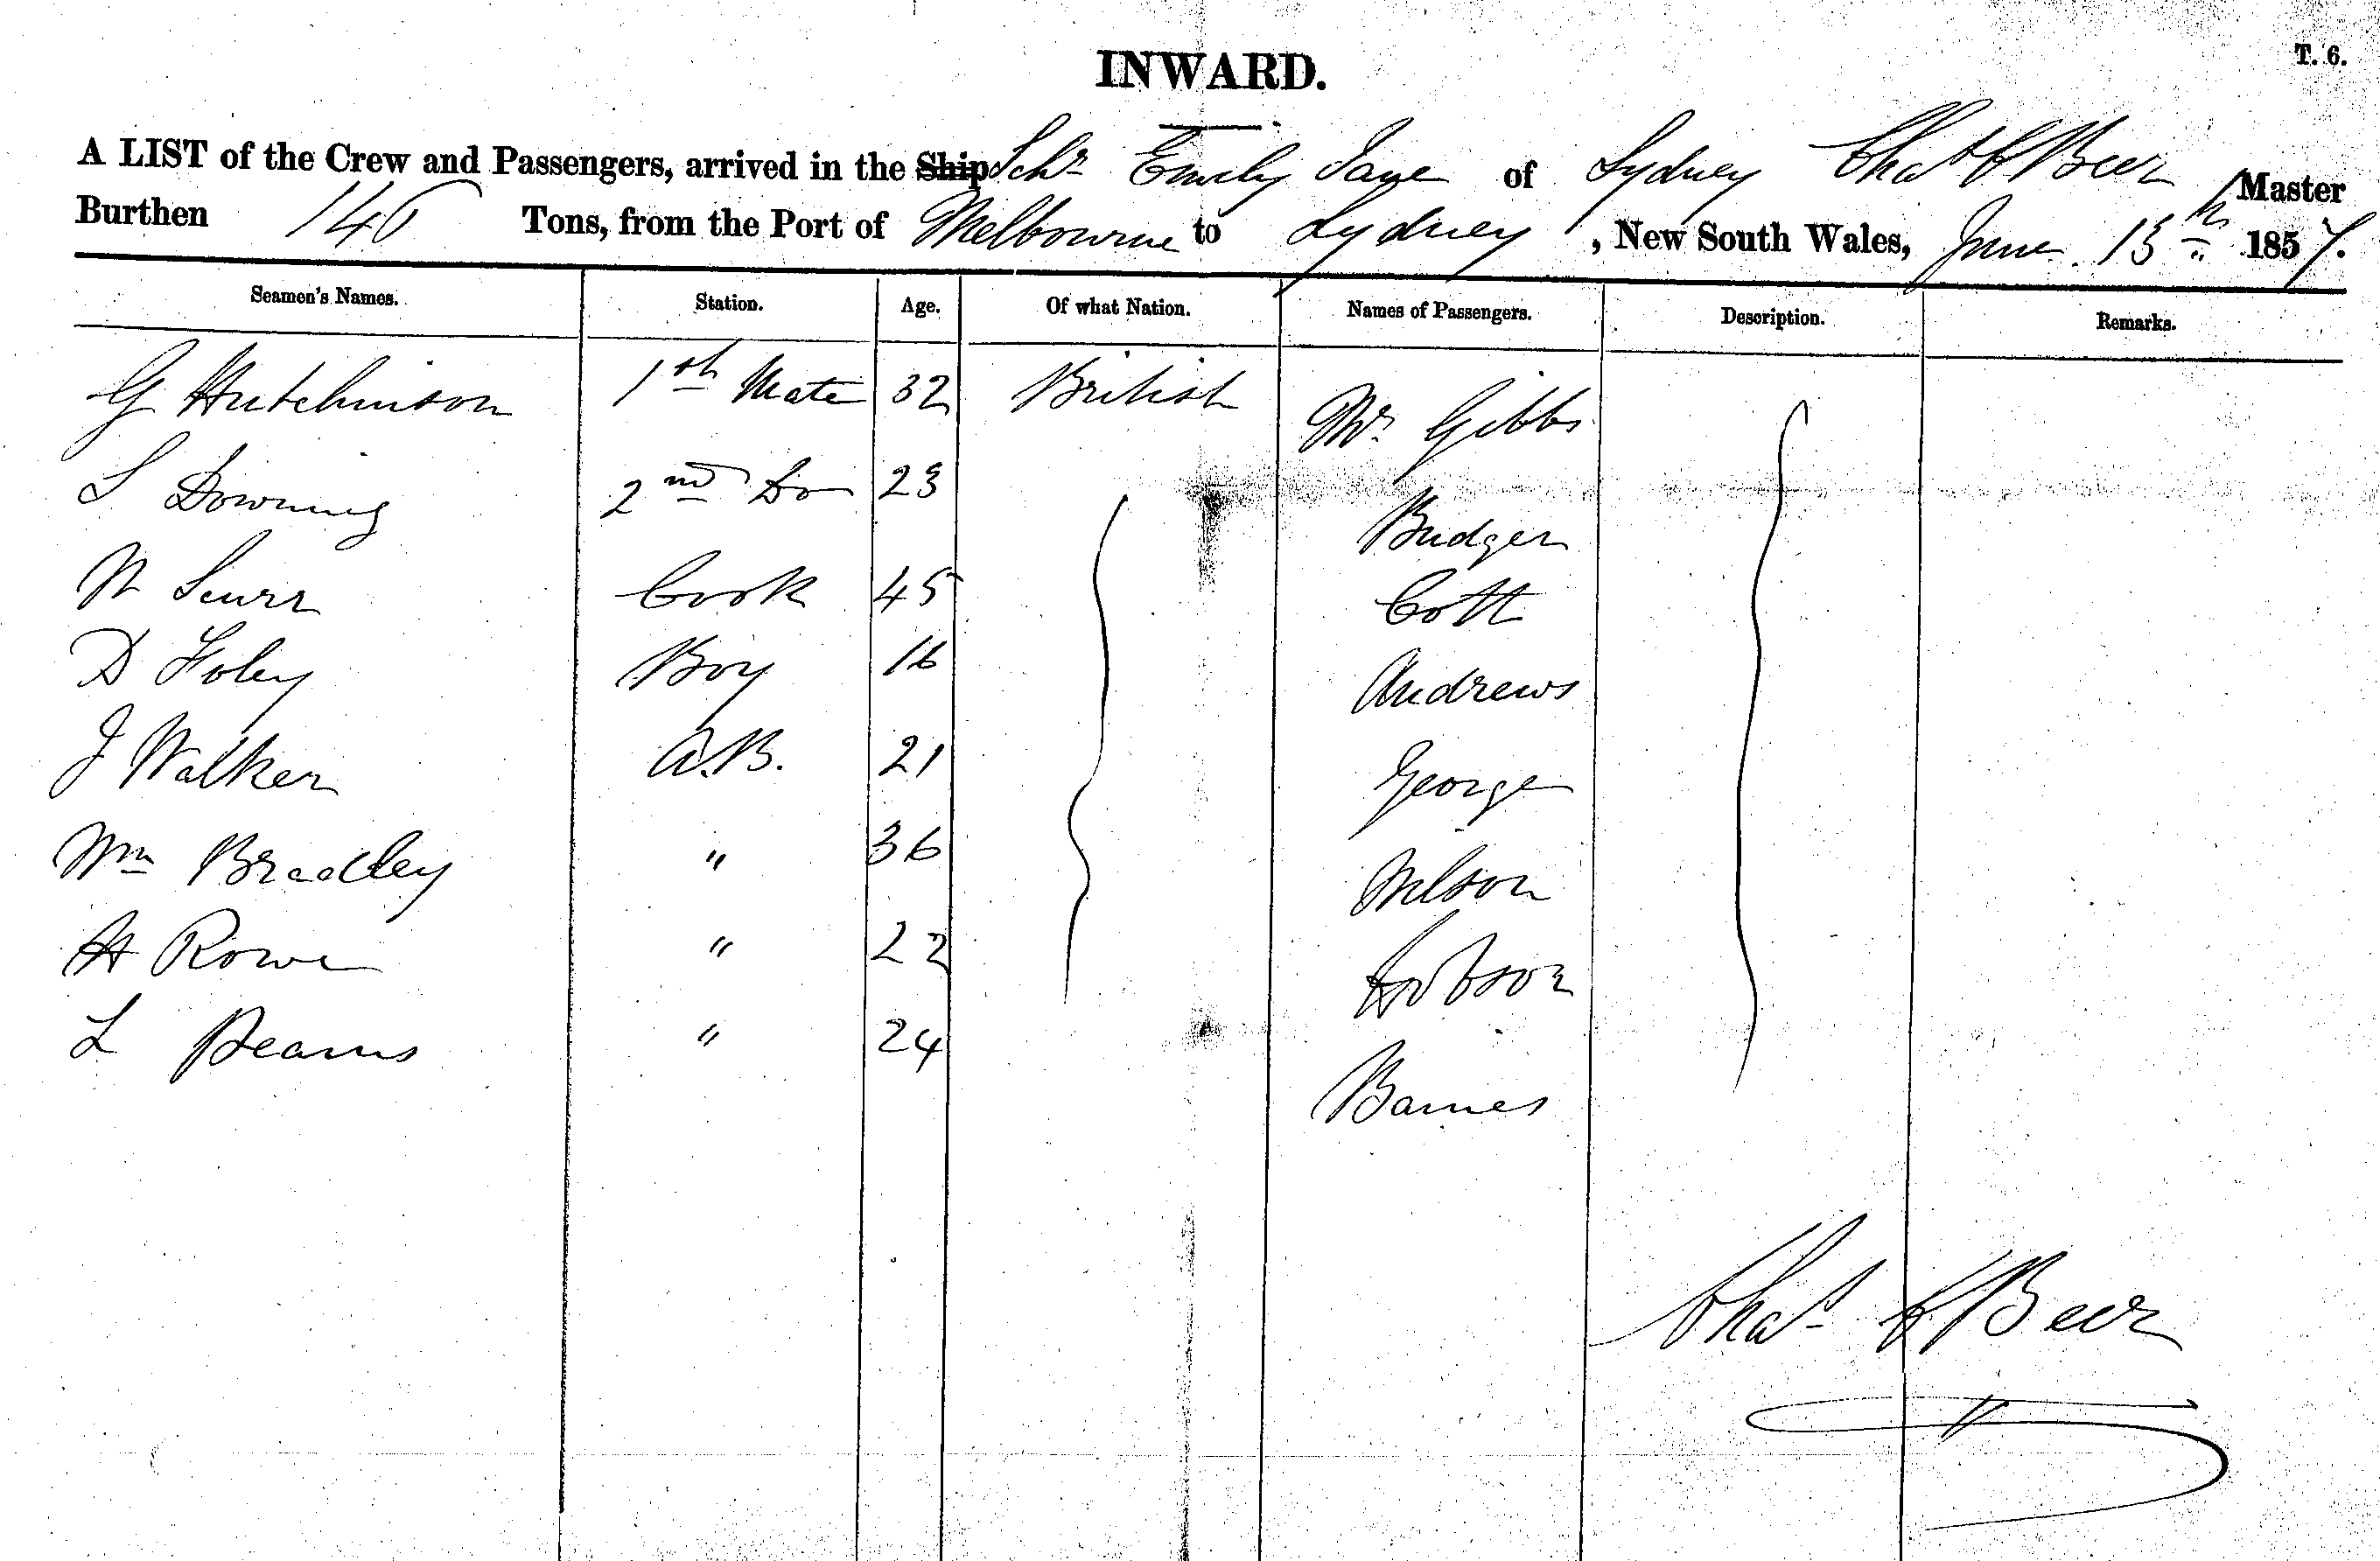 INWARD.
T. 6.
A LIST of the Crew and Passengers, arrived in the Ship Schr Emily Jane of Sydney Chas Beer Master
Burthen 146 Tons, from the Port of Melbourne to Sydney, New South Wales, June 13th 1857.
Seamen's Names. Station. Age. Of what Nation. Names of Passengers. Description. Remarks.
G Hutchinson 1st Mate 32 British Mr. Gibbs
S Downing 2nd Do 23 Budger
W Scurr Cook 45 Cott
D Foley Boy 16 Andrews
J Walker A.B. 21 George
Wm Bradley " 36 Nelson
H Rowe " 22 Hobson
L Beams " 24 Barnes
Chas Beer